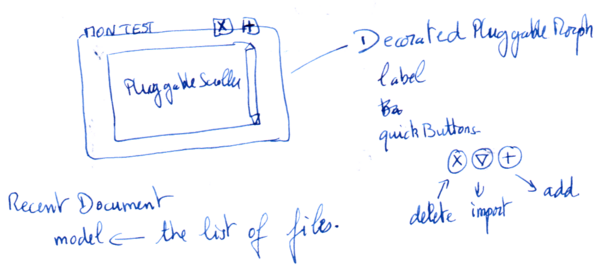 MON TEST
X +
Pluggable Scroller
Decorated Pluggable Morph
label
quickButtons
X ▽ +
delete import add
Recent Document
model ← the list of files.